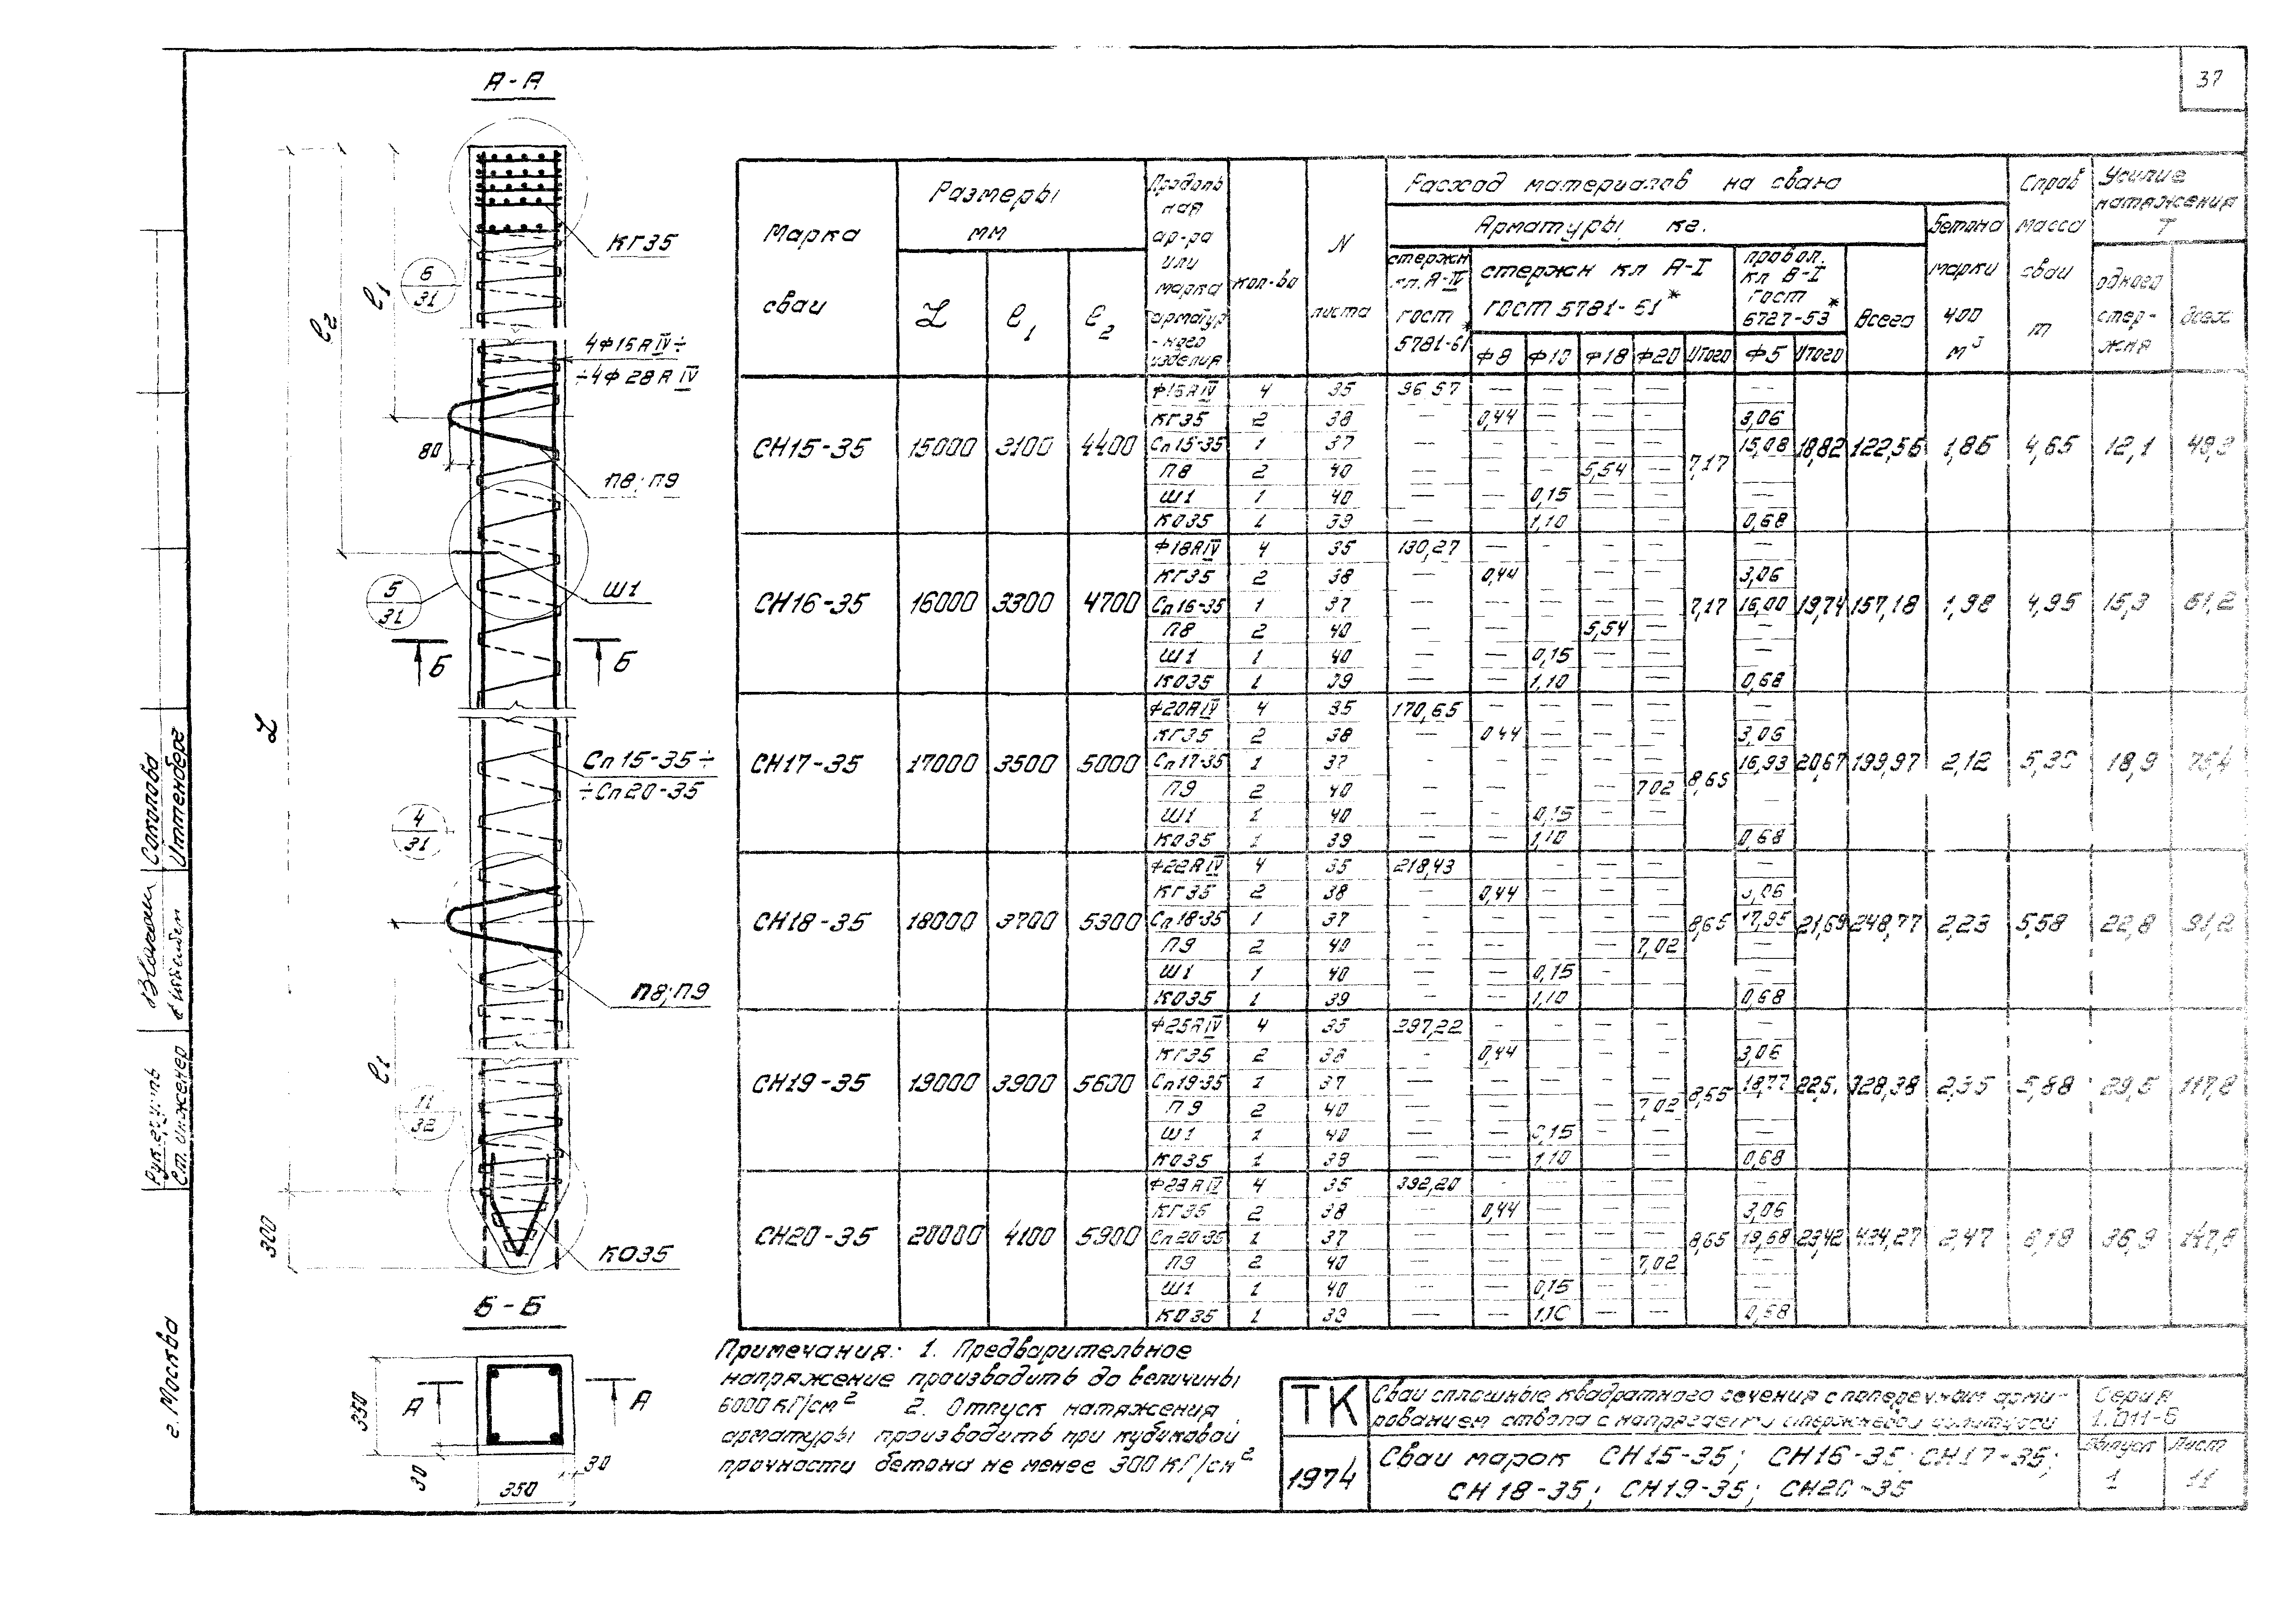 37
А-А
КГ35
6
31
l₁
l₂
4Ф16АIV÷
÷4Ф28АIV
80
П8; П9
Ш1
5
31
Б
Б
L
Сп15-35÷
÷Сп20-35
4
31
П8; П9
l₁
11
32
300
КО35
Б-Б
350
А
А
30
30
350
Соколова
Рук. группы
Ст. инженер
г. Москва
Марка сваи
Размеры мм
L
l₁
l₂
Продольная ар-ра или марка арматурного изделия
Кол-во
N листа
Расход материалов на сваю
Арматуры, кг.
стержн кл. А-IV гост 5781-61*
стержн кл А-I гост 5781-61*
Ф8 Ф10 Ф18 Ф20 Итого
провол. кл В-I гост 6727-53*
Ф5 Итого
Всего
Бетона марки 400 м³
Справ масса сваи т
Усилие натяжения Т
одного стержня
всех
Ф16АIV 4 35 96,57 — — — — —
КГ35 2 38 — 0,44 — — — 3,06
СН15-35 15000 3100 4400 Сп15-35 1 37 — — — — — 7,17 15,08 18,82 122,56 1,86 4,65 12,1 48,3
П8 2 40 — — — 5,54 —
Ш1 1 40 — — 0,15 — — —
КО35 1 39 — 1,10 — 0,68
Ф18АIV 4 35 130,27 — — — — —
КГ35 2 38 — 0,44 — — 3,06
СН16-35 16000 3300 4700 Сп16-35 1 37 — — — — — 7,17 16,00 19,74 157,18 1,98 4,95 15,3 61,2
П8 2 40 — — — 5,54 — —
Ш1 1 40 — — 0,15 — — —
КО35 1 39 — — 1,10 — — 0,68
Ф20АIV 4 35 170,65 — — — — —
КГ35 2 38 — 0,44 — — — 3,06
СН17-35 17000 3500 5000 Сп17-35 1 37 — — — — — 8,65 16,93 20,67 199,97 2,12 5,30 18,9 75,4
П9 2 40 — — — — 7,02 —
Ш1 1 40 — — 0,15 — — —
КО35 1 39 — — 1,10 — — 0,68
Ф22АIV 4 35 218,43 — — — — —
КГ35 2 38 — 0,44 — — — 3,06
СН18-35 18000 3700 5300 Сп18-35 1 37 — — — — — 8,65 17,95 21,69 248,77 2,23 5,58 22,8 91,2
П9 2 40 — — — — 7,02 —
Ш1 1 40 — — 0,15 — —
КО35 1 39 — — 1,10 — — 0,68
Ф25АIV 4 35 297,22 — — — — —
КГ35 2 38 — 0,44 — — 3,06
СН19-35 19000 3900 5600 Сп19-35 1 37 — — — — — 8,65 18,77 22,5 328,38 2,35 5,88 29,5 117,8
П9 2 40 — — — — 7,02 —
Ш1 1 40 — — 0,15 — — —
КО35 1 39 — — 1,10 — 0,68
Ф28АIV 4 35 392,20 — — — — —
КГ35 2 38 — 0,44 — — — 3,06
СН20-35 20000 4100 5900 Сп20-35 1 37 — — — — — 8,65 19,68 23,42 424,27 2,47 6,18 36,9 147,6
П9 2 40 — — — — 7,02 —
Ш1 1 40 — — 0,15 — — —
КО35 1 39 — — 1,10 — — 0,68
Примечания: 1. Предварительное
напряжение производить до величины
6000 кГ/см² 2. Отпуск натяжения
арматуры производить при кубиковой
прочности бетона не менее 300 кГ/см²
ТК
1974
Сваи сплошные квадратного сечения с поперечным арми-
рованием ствола с напрягаемой стержневой арматурой
Сваи марок СН15-35; СН16-35; СН17-35;
СН18-35; СН19-35; СН20-35
Серия
1.011-6
Выпуск Лист
1 11